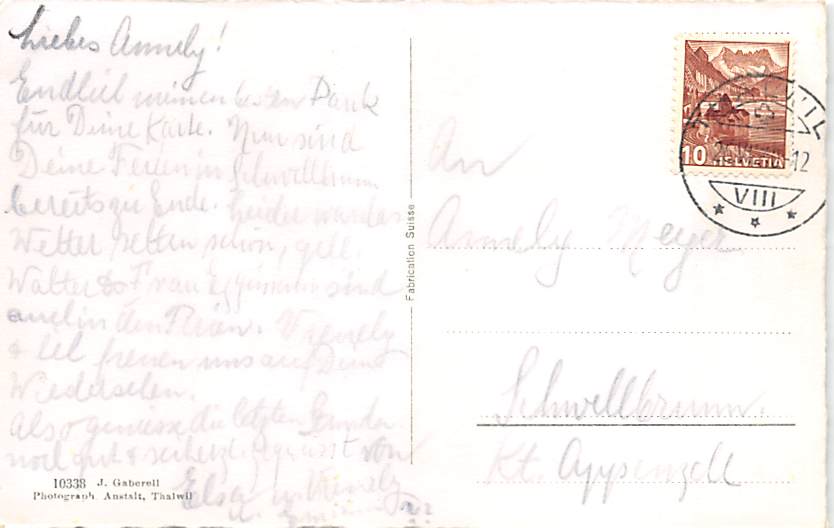 Liebes Annely!
Endlich meinen besten Dank
für Deine Karte. Nun sind
Deine Ferien in Schwellbrunn
bereits zu Ende. Leider war das
Wetter selten schön, gell.
Walter & Frau Eggimann sind
auch in den Ferien. Vrenely
& ich freuen uns auf Dein
Wiedersehen.
Also geniesse die letzten Stunden
noch gut & sei herzlich gegrüsst von
Elsa Vrenely
Fabrication Suisse
10338 J. Gaberell
Photograph. Anstalt, Thalwil
10 HELVETIA
12
VIII
An
Annely Meyer
Schwellbrunn.
Kt. Appenzell